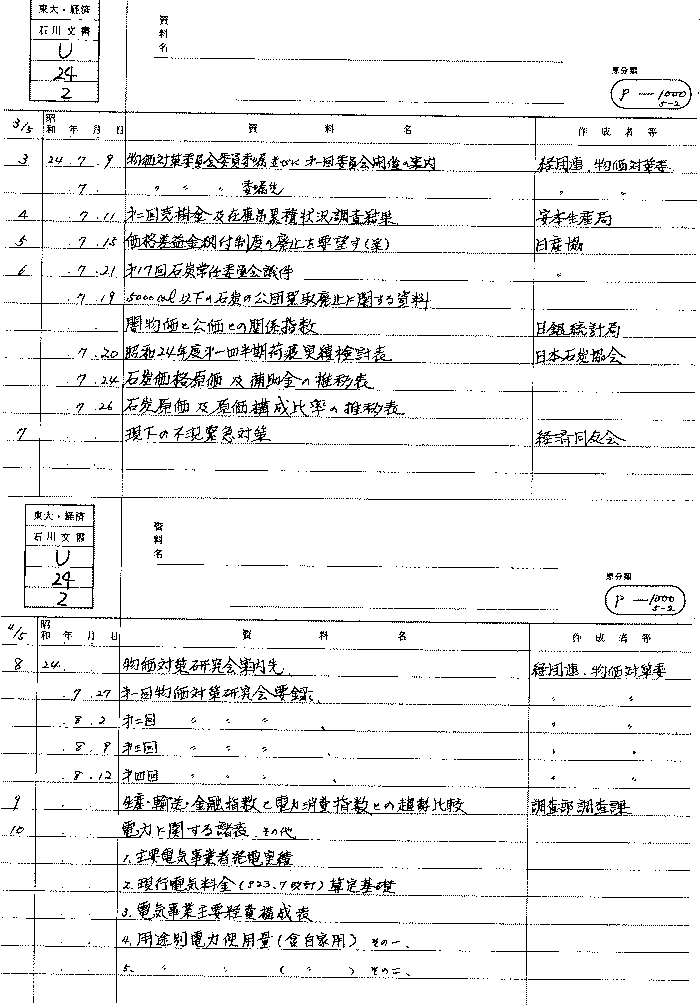 東大・経済
石川文書
U
24
2
資料名
原分類
P-1000 5-2
3/5 昭和 年 月 日 資料名 作成者等
3 24.7.9 物価対策委員会委員委嘱並びに第一回委員会開催の案内 経団連、物価対策委
7. 〃 〃 〃 委嘱先 〃 〃
4 7.11 第二回売掛金及在庫品累積状況調査結果 安本生産局
5 7.15 価格差益金納付制度の廃止を要望す(案) 日産協
6 7.21 第17回石炭常任委員会議件 〃
7.19 5000cal以下の石炭の公団買取廃止に関する資料
闇物価と公価との関係指数 日銀統計局
7.20 昭和24年度第一四半期荷渡実績検討表 日本石炭協会
7.24 石炭価格原価及補助金の推移表
7.26 石炭原価及原価構成比率の推移表
7 現下の不況緊急対策 経済同友会
東大・経済
石川文書
U
24
2
資料名
原分類
P-1000 5-2
4/5 昭和 年 月 日 資料名 作成者等
8 24. 物価対策研究会案内先 経団連、物価対策委
.7.27 第一回物価対策研究会要録、 〃 〃
.8.2 第二回 〃 〃 〃 、 〃 〃
.8.9 第三回 〃 〃 〃 〃 〃
.8.12 第四回 〃 〃 〃 、 〃 〃
9 生産・輸送・金融指数と電力消費指数との趨勢比較 調査部調査課
10 電力に関する諸表 その他
1.主要電気事業者発電実績
2.現行電気料金(S23.7改訂)算定基礎
3.電気事業主要経費構成表
4.用途別電力使用量(含自家用) その一、
5. 〃 〃 ( 〃 ) その二、